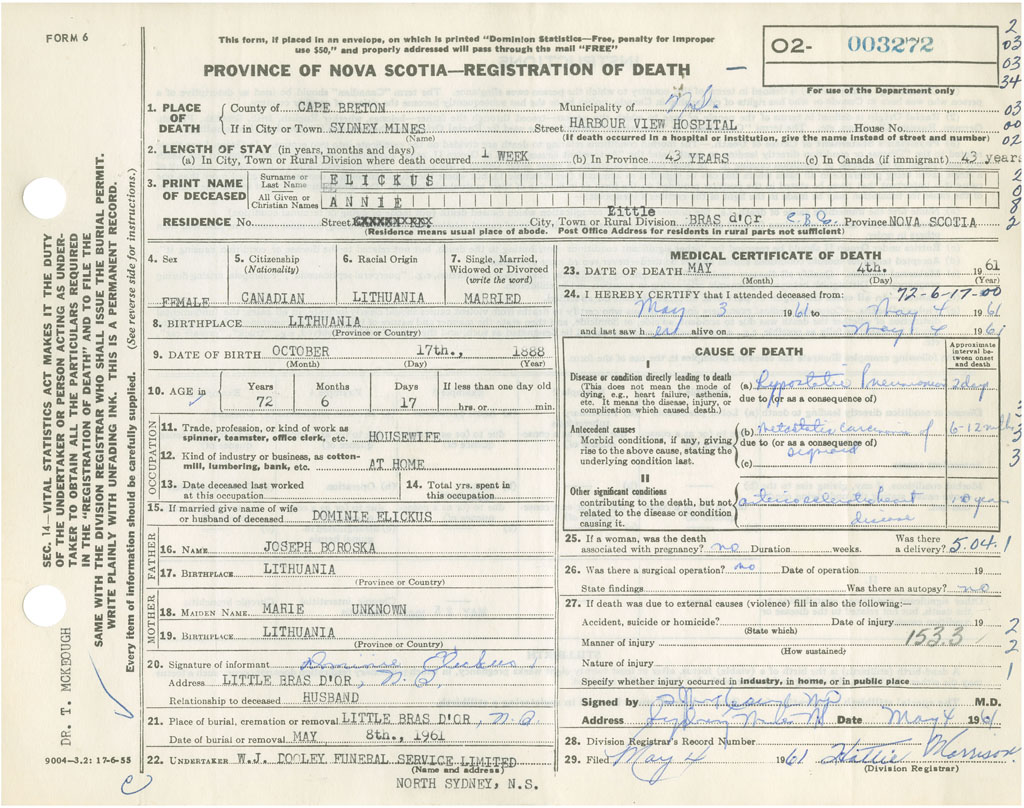 FORM 6
This form, if placed in an envelope, on which is printed "Dominion Statistics—Free, penalty for improper
use $50," and properly addressed will pass through the mail "FREE"
PROVINCE OF NOVA SCOTIA—REGISTRATION OF DEATH
02- 003272
For use of the Department only
2
03
03
34
03
00
02
1. PLACE OF DEATH
County of CAPE BRETON Municipality of
If in City or Town SYDNEY MINES Street HARBOUR VIEW HOSPITAL House No.
(Name) (If death occurred in a hospital or institution, give the name instead of street and number)
2. LENGTH OF STAY (in years, months and days)
(a) In City, Town or Rural Division where death occurred 1 WEEK (b) In Province 43 YEARS (c) In Canada (if immigrant) 43 years
3. PRINT NAME OF DECEASED
Surname or Last Name ELICKUS
All Given or Christian Names ANNIE
Little
RESIDENCE No. Street XXXXXXXXXX City, Town or Rural Division BRAS d'Or C.B.Co. Province NOVA SCOTIA
(Residence means usual place of abode. Post Office Address for residents in rural parts not sufficient)
2
0
8
2
4. Sex
FEMALE
5. Citizenship (Nationality)
CANADIAN
6. Racial Origin
LITHUANIA
7. Single, Married, Widowed or Divorced (write the word)
MARRIED
8. BIRTHPLACE LITHUANIA
(Province or Country)
9. DATE OF BIRTH OCTOBER 17th., 1888
(Month) (Day) (Year)
10. AGE in
Years Months Days If less than one day old
72 6 17 hrs. or min.
OCCUPATION
11. Trade, profession, or kind of work as spinner, teamster, office clerk, etc. HOUSEWIFE
12. Kind of industry or business, as cotton-mill, lumbering, bank, etc. AT HOME
13. Date deceased last worked at this occupation
14. Total yrs. spent in this occupation
15. If married give name of wife or husband of deceased DOMINIE ELICKUS
FATHER
16. NAME JOSEPH BOROSKA
17. BIRTHPLACE LITHUANIA
(Province or Country)
MOTHER
18. MAIDEN NAME MARIE UNKNOWN
19. BIRTHPLACE LITHUANIA
(Province or Country)
20. Signature of informant Elickus
Address LITTLE BRAS D'OR,
Relationship to deceased HUSBAND
21. Place of burial, cremation or removal LITTLE BRAS D'OR,
Date of burial or removal MAY 8th., 1961
22. UNDERTAKER W.J. DOOLEY FUNERAL SERVICE LIMITED
(Name and address)
NORTH SYDNEY, N.S.
MEDICAL CERTIFICATE OF DEATH
23. DATE OF DEATH MAY 4th. 1961
(Month) (Day) (Year)
24. I HEREBY CERTIFY that I attended deceased from: 72-6-17-00
May 3 1961 to May 4 1961
and last saw her alive on May 4 1961
CAUSE OF DEATH
Approximate interval between onset and death
I
Disease or condition directly leading to death
(This does not mean the mode of dying, e.g., heart failure, asthenia, etc. It means the disease, injury, or complication which caused death.)
(a) Hypostatic Pneumonia 2 days
due to (or as a consequence of)
Antecedent causes
Morbid conditions, if any, giving rise to the above cause, stating the underlying condition last.
(b) metastatic carcinoma of 6-12 mths
due to (or as a consequence of)
sigmoid
(c)
II
Other significant conditions
contributing to the death, but not related to the disease or condition causing it.
arteriosclerotic heart
disease
10 years
3
3
3
25. If a woman, was the death associated with pregnancy? no Duration weeks. Was there a delivery? 5.04.1
26. Was there a surgical operation? no Date of operation 19
State findings Was there an autopsy? no
27. If death was due to external causes (violence) fill in also the following:—
Accident, suicide or homicide? Date of injury 19
(State which)
Manner of injury 153.3
(How sustained)
Nature of injury
Specify whether injury occurred in industry, in home, or in public place
2
2
1
Signed by M.D.
Address Sydney Mines Date May 4 1961
28. Division Registrar's Record Number
29. Filed May 4 1961 Hattie Morrison
(Division Registrar)
SEC. 14—VITAL STATISTICS ACT MAKES IT THE DUTY
OF THE UNDERTAKER OR PERSON ACTING AS UNDER-
TAKER TO OBTAIN ALL THE PARTICULARS REQUIRED
IN THE "REGISTRATION OF DEATH" AND TO FILE THE
SAME WITH THE DIVISION REGISTRAR WHO SHALL ISSUE THE BURIAL PERMIT.
WRITE PLAINLY WITH UNFADING INK. THIS IS A PERMANENT RECORD.
Every item of information should be carefully supplied. (See reverse side for instructions.)
DR. T. MCKEOUGH
9004—3.2: 17-6-55